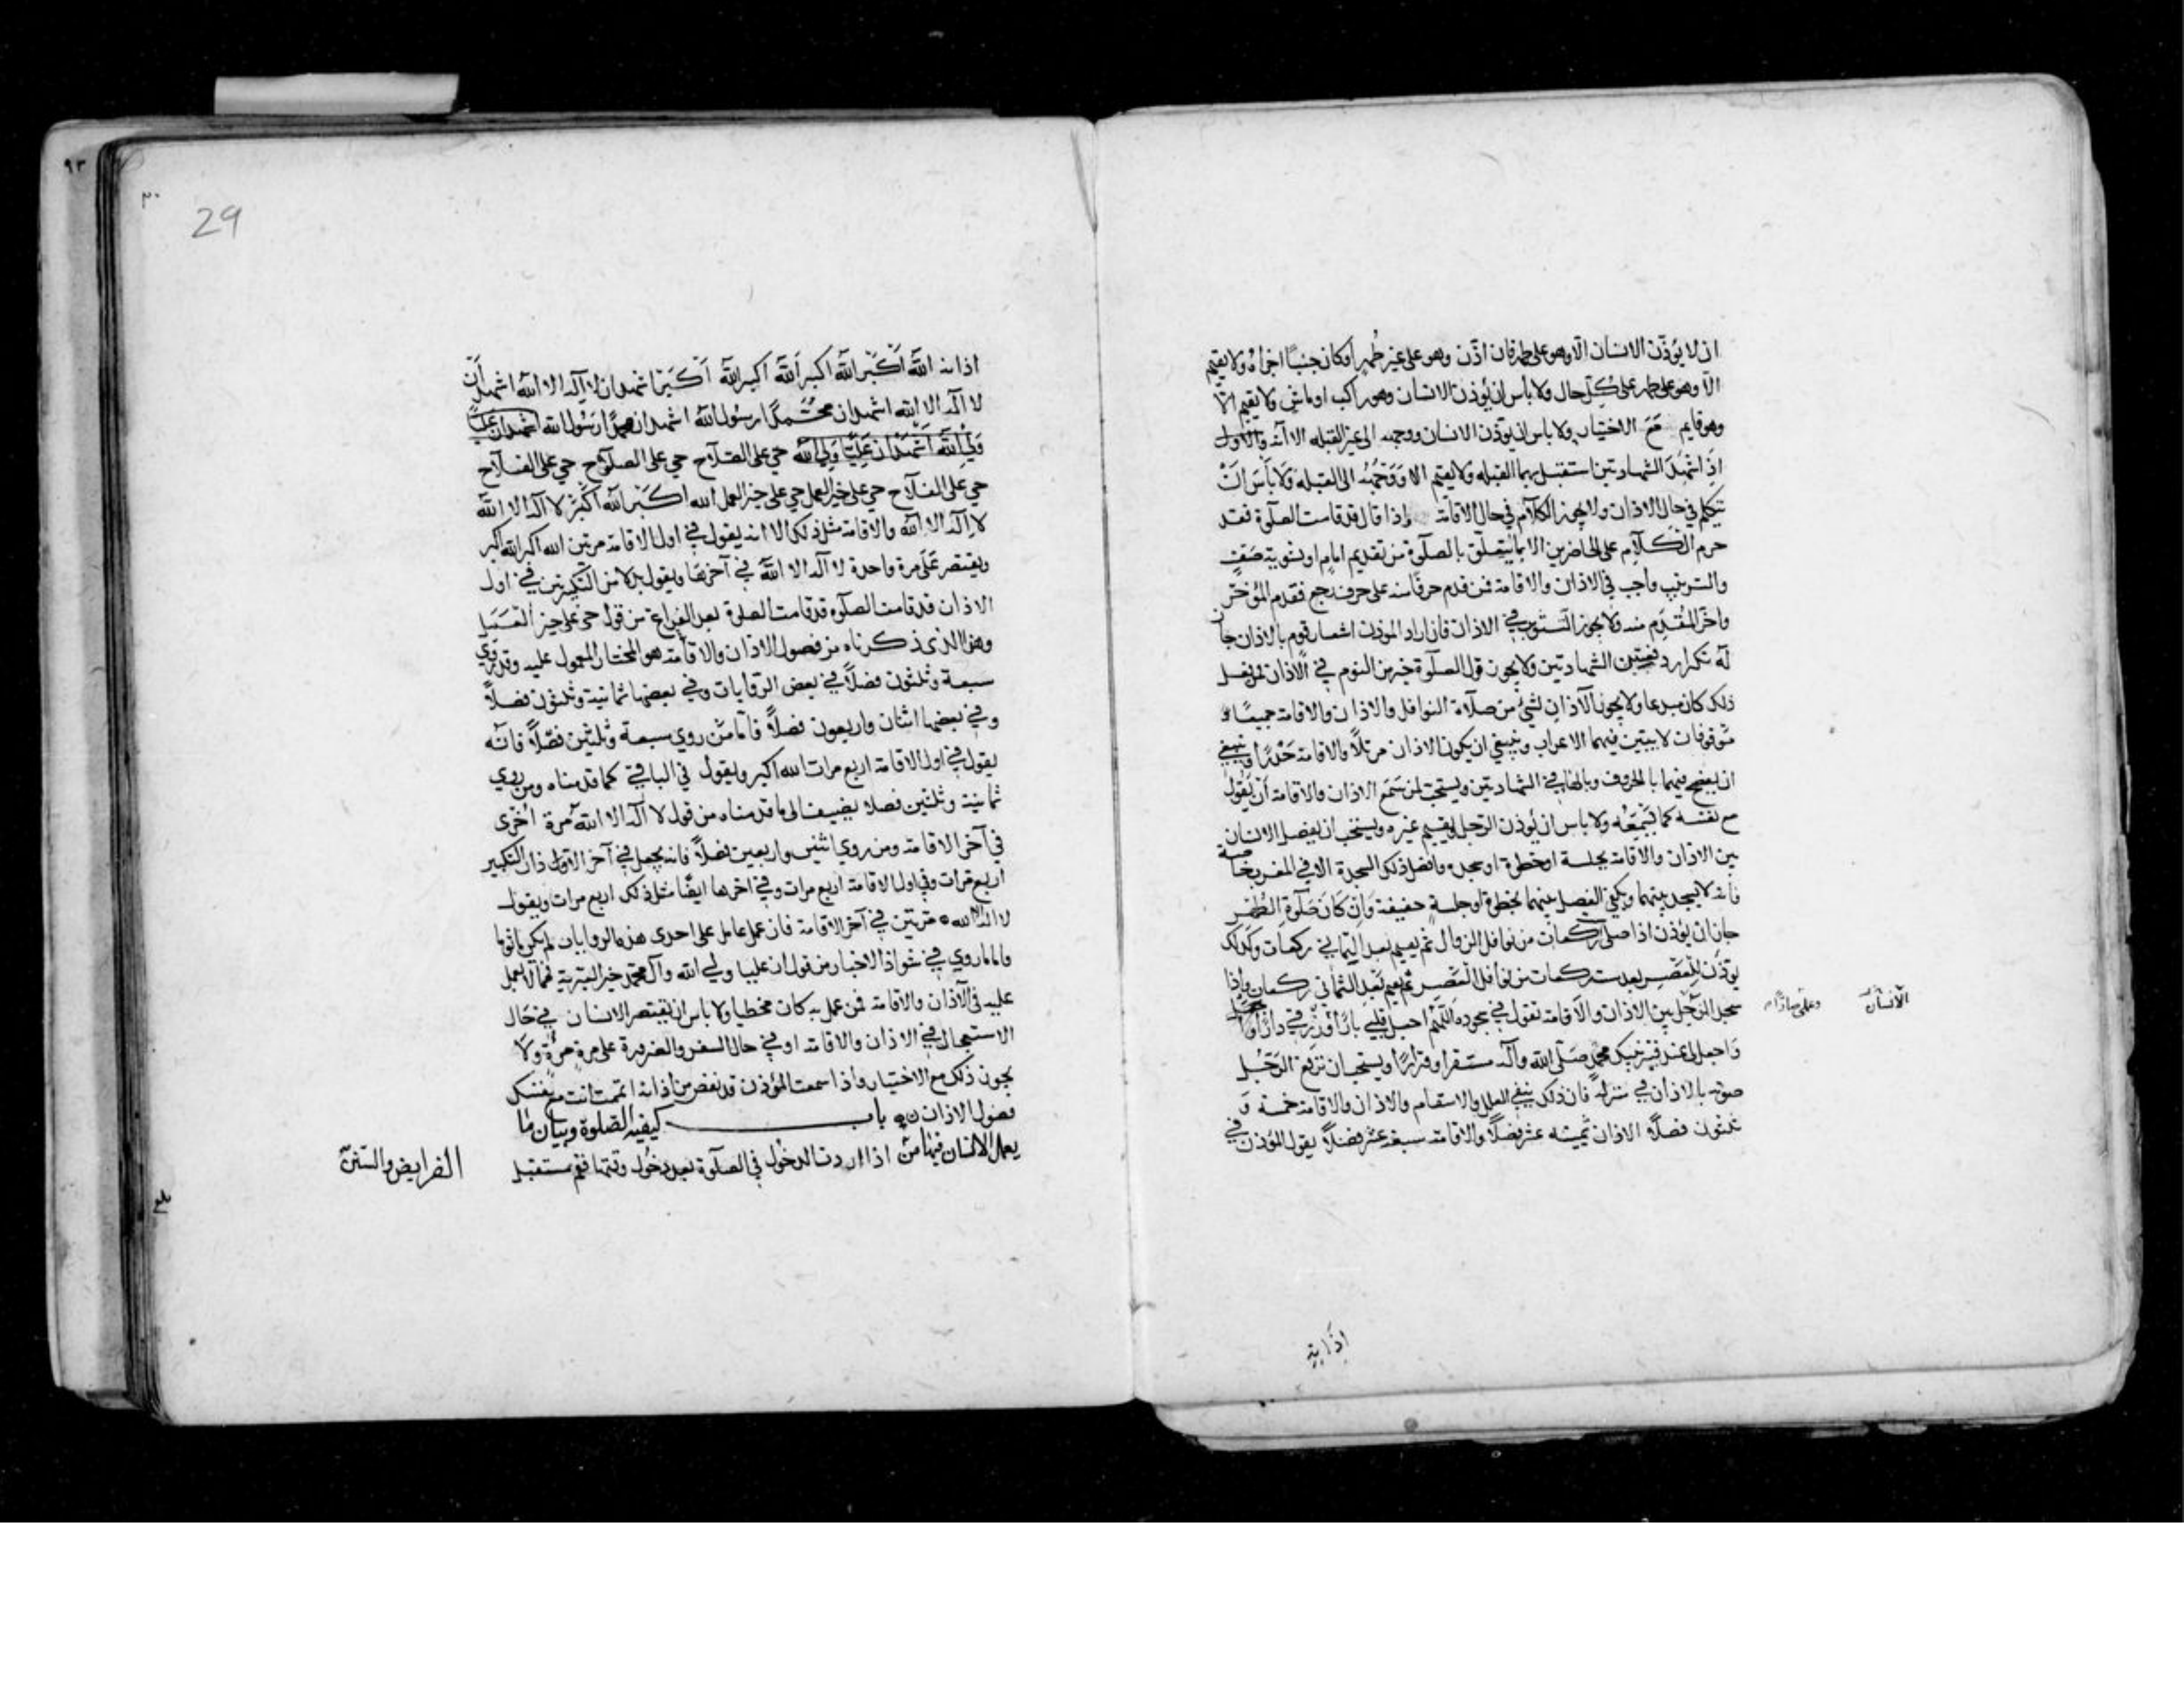 ان لا يؤذّن الانسان الّا وهو على طهر فان اذّن وهو على غير طهر او كان جنبًا اجزاه ولا يقيم
الّا وهو على طهر على كلّ حال ولا بأس ان يؤذن الانسان وهو راكب او ماشي ولا يقيم الّا
وهو قايم مَعَ الاختيار ولا باس ان يؤذن الانسان ووجهه الى غير القبله الا انّه
اذا شهد الشهادتين استقبل بهما القبله ولا يقيم الا ووجهه الى القبله ولا بأس ان
يتكلم في حال الاذان ولا يجوز الكلام في حال الاقامة واذا قال قد قامت الصلوة فقد
حرم الكلام على الحاضرين الا بما يتعلق بالصلوة من تقديم امام او تسوية صف
والترتيب واجب في الاذان والاقامة فمن قدم حرفا منه على حرف رجع فقدم المؤخّر
واخّر المقدّم منه ولا يجوز التثويب في الاذان فان اراد المؤذن اشعار قوم بالاذان جاز
له تكرار دفعتين الشهادتين ولا يجوز قول الصلوة خير من النوم في الاذان فمن فعل
ذلك كان مبدعا ولا يجوز الاذان لشئ من صلاة النوافل والاذان والاقامة جميعًا
موقوفان لا يبين فيهما الاعراب وينبغي ان يكون الاذان مرتلًا والاقامة حدرًا وينبغي
ان يفصح فيهما بالحروف وبالهاء في الشهادتين ويستحب لمن سمع الاذان والاقامة ان يقول
مع نفسه كما يسمعه ولا باس ان يؤذن الرجل ويقيم غيره ويستحب ان يفصل الانسان
بين الاذان والاقامة بجلسة او خطوة او سجدة وافضل ذلك السجدة الا في المغرب خاصة
فانه لا يسجد بينهما ويكفي الفصل بينهما بخطوة او جلسة خفيفة وان كان صلوة الظهر
جاز ان يؤذن اذا صلى ركعات من نوافل الزوال ثم يقيم بعد الثماني ركعات وكذلك
يؤذّن للعصر بعد ست ركعات من نوافل العصر ثم يقيم بعد الثماني ركعات واذا
سجد الرجل بين الاذان والاقامة يقول في سجوده اللّهم اجعل قلبي بارًا ورزقي دارًا
الانسان
واجعل لي عند قبر نبيك محمد صلّى الله وآله مستقرا وقرارًا ويستحب ان يرفع الرجل
صوته بالاذان في منزله فان ذلك ينفي العلل والاسقام والاذان والاقامة خمسة و
ثلثون فصلًا الاذان ثمنية عشر فصلًا والاقامة سبعة عشر فصلًا يقول المؤذن في
اذانه
٩٣
٣٠
29
اذانه الله أكبر الله اكبر الله اكبر الله أكبر اشهد ان لا اله الا الله اشهد أن
لا اله الا الله اشهد ان محمدًا رسول الله اشهد ان محمدًا رسول الله اشهد ان عليًا
ولي الله اشهد ان عليًا ولي الله حي على الصلاح حي على الصلوح حي على الفلاح
حي على الفلاح حي على خير العمل حي على خير العمل الله اكبر الله أكبر لا اله الا الله
لا اله الا الله والاقامة مثل ذلك الا انه يقول في اول الاقامة مرتين الله اكبر الله اكبر
ويقتصر على مرة واحدة لا اله الا الله في آخرها ويقول بدلا من التكبيرتين في اول
الاذان قد قامت الصلوه قد قامت الصلوة بعد الفراغ من قول حي على خير العمل
وهذا الذي ذكرناه من فصول الاذان والاقامة هو المختار المعمول عليه وقد روي
سبعة وثلثون فصلًا في بعض الروايات وفي بعضها ثمانية وثلثون فصلًا
وفي بعضها اثنان واربعون فصلًا فامّا من روي سبعة وثلثين فصلًا فانّه
يقول في اول الاقامة اربع مرات الله اكبر ويقول في الباقي كما قدمناه ومن روي
ثمانية وثلثين فصلا يضيف الى ما قدمناه من قول لا اله الا الله مرة اخرى
في آخر الاقامة ومن روي اثنين واربعين فصلًا فانه يجعل في آخر الاذان التكبير
اربع مرات وفي اول الاقامة اربع مرات وفي اخرها ايضًا مثل ذلك اربع مرات ويقول
لا اله الا الله مرتين في آخر الاقامة فان عمل عامل على احدى هذه الروايات لم يكن ماثوما
واما ما روي في شواذ الاخبار من قول ان عليا ولي الله وآل محمد خير البرية فمما لا يعمل
عليه في الاذان والاقامة فمن عمل به كان مخطيا ولا باس ان يقتصر الانسان في حال
الاستعجال في الاذان والاقامة او في حال السفر والضرورة على مرة مرة ولا
يجوز ذلك مع الاختيار واذا سمعت المؤذن قد نقص من اذانه اتممت انت مع نفسك
فصول الاذان باب كيفية الصلوة وبيان ما
يعمل الانسان فيها من الفرايض والسنن اذا اردت الدخول في الصلوة بعد دخول وقتها فقم مستقبل